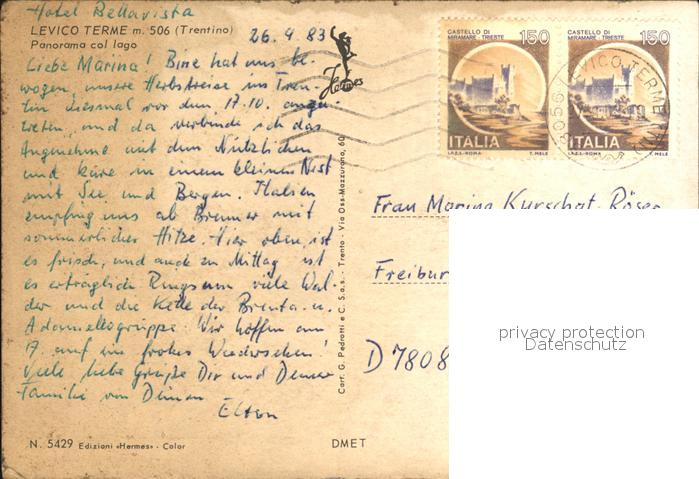 Hotel Bellavista
LEVICO TERME m. 506 (Trentino)
Panorama col lago
26.9.83
Hermes
Liebe Marina! Bine hat uns be-
wogen, unsere Herbstreise ins Tren-
tin diesmal vor dem 17.10. anzu-
treten, und da verbinde ich das
Angenehme mit dem Nützlichen
und kure in einem kleinen Nest
mit See und Bergen. Italien
empfing uns ab Brenner mit
sommerlicher Hitze. Hier oben ist
es frisch, und auch zu Mittag ist
es erträglich. Ringsum viele Wäl-
der und die Kette der Brenta- u.
Adamellogruppe. Wir hoffen am
17. auf ein frohes Wiedersehen!
Viele liebe Grüße Dir und Deiner
Familie von Deinen
Eltern
N. 5429 Edizioni «Hermes» - Color
Cart. G. Pedrotti e C. S.a.s. - Trento - Via Oss-Mazzurana, 60
DMET
CASTELLO DI
MIRAMARE - TRIESTE
150
ITALIA
I.P.Z.S.-ROMA T. MELE
CASTELLO DI
MIRAMARE - TRIESTE
150
ITALIA
I.P.Z.S.-ROMA T. MELE
LEVICO TERME
38056
Frau Marina Kurschat-Röser
Freibur
D 7808
privacy protection
Datenschutz